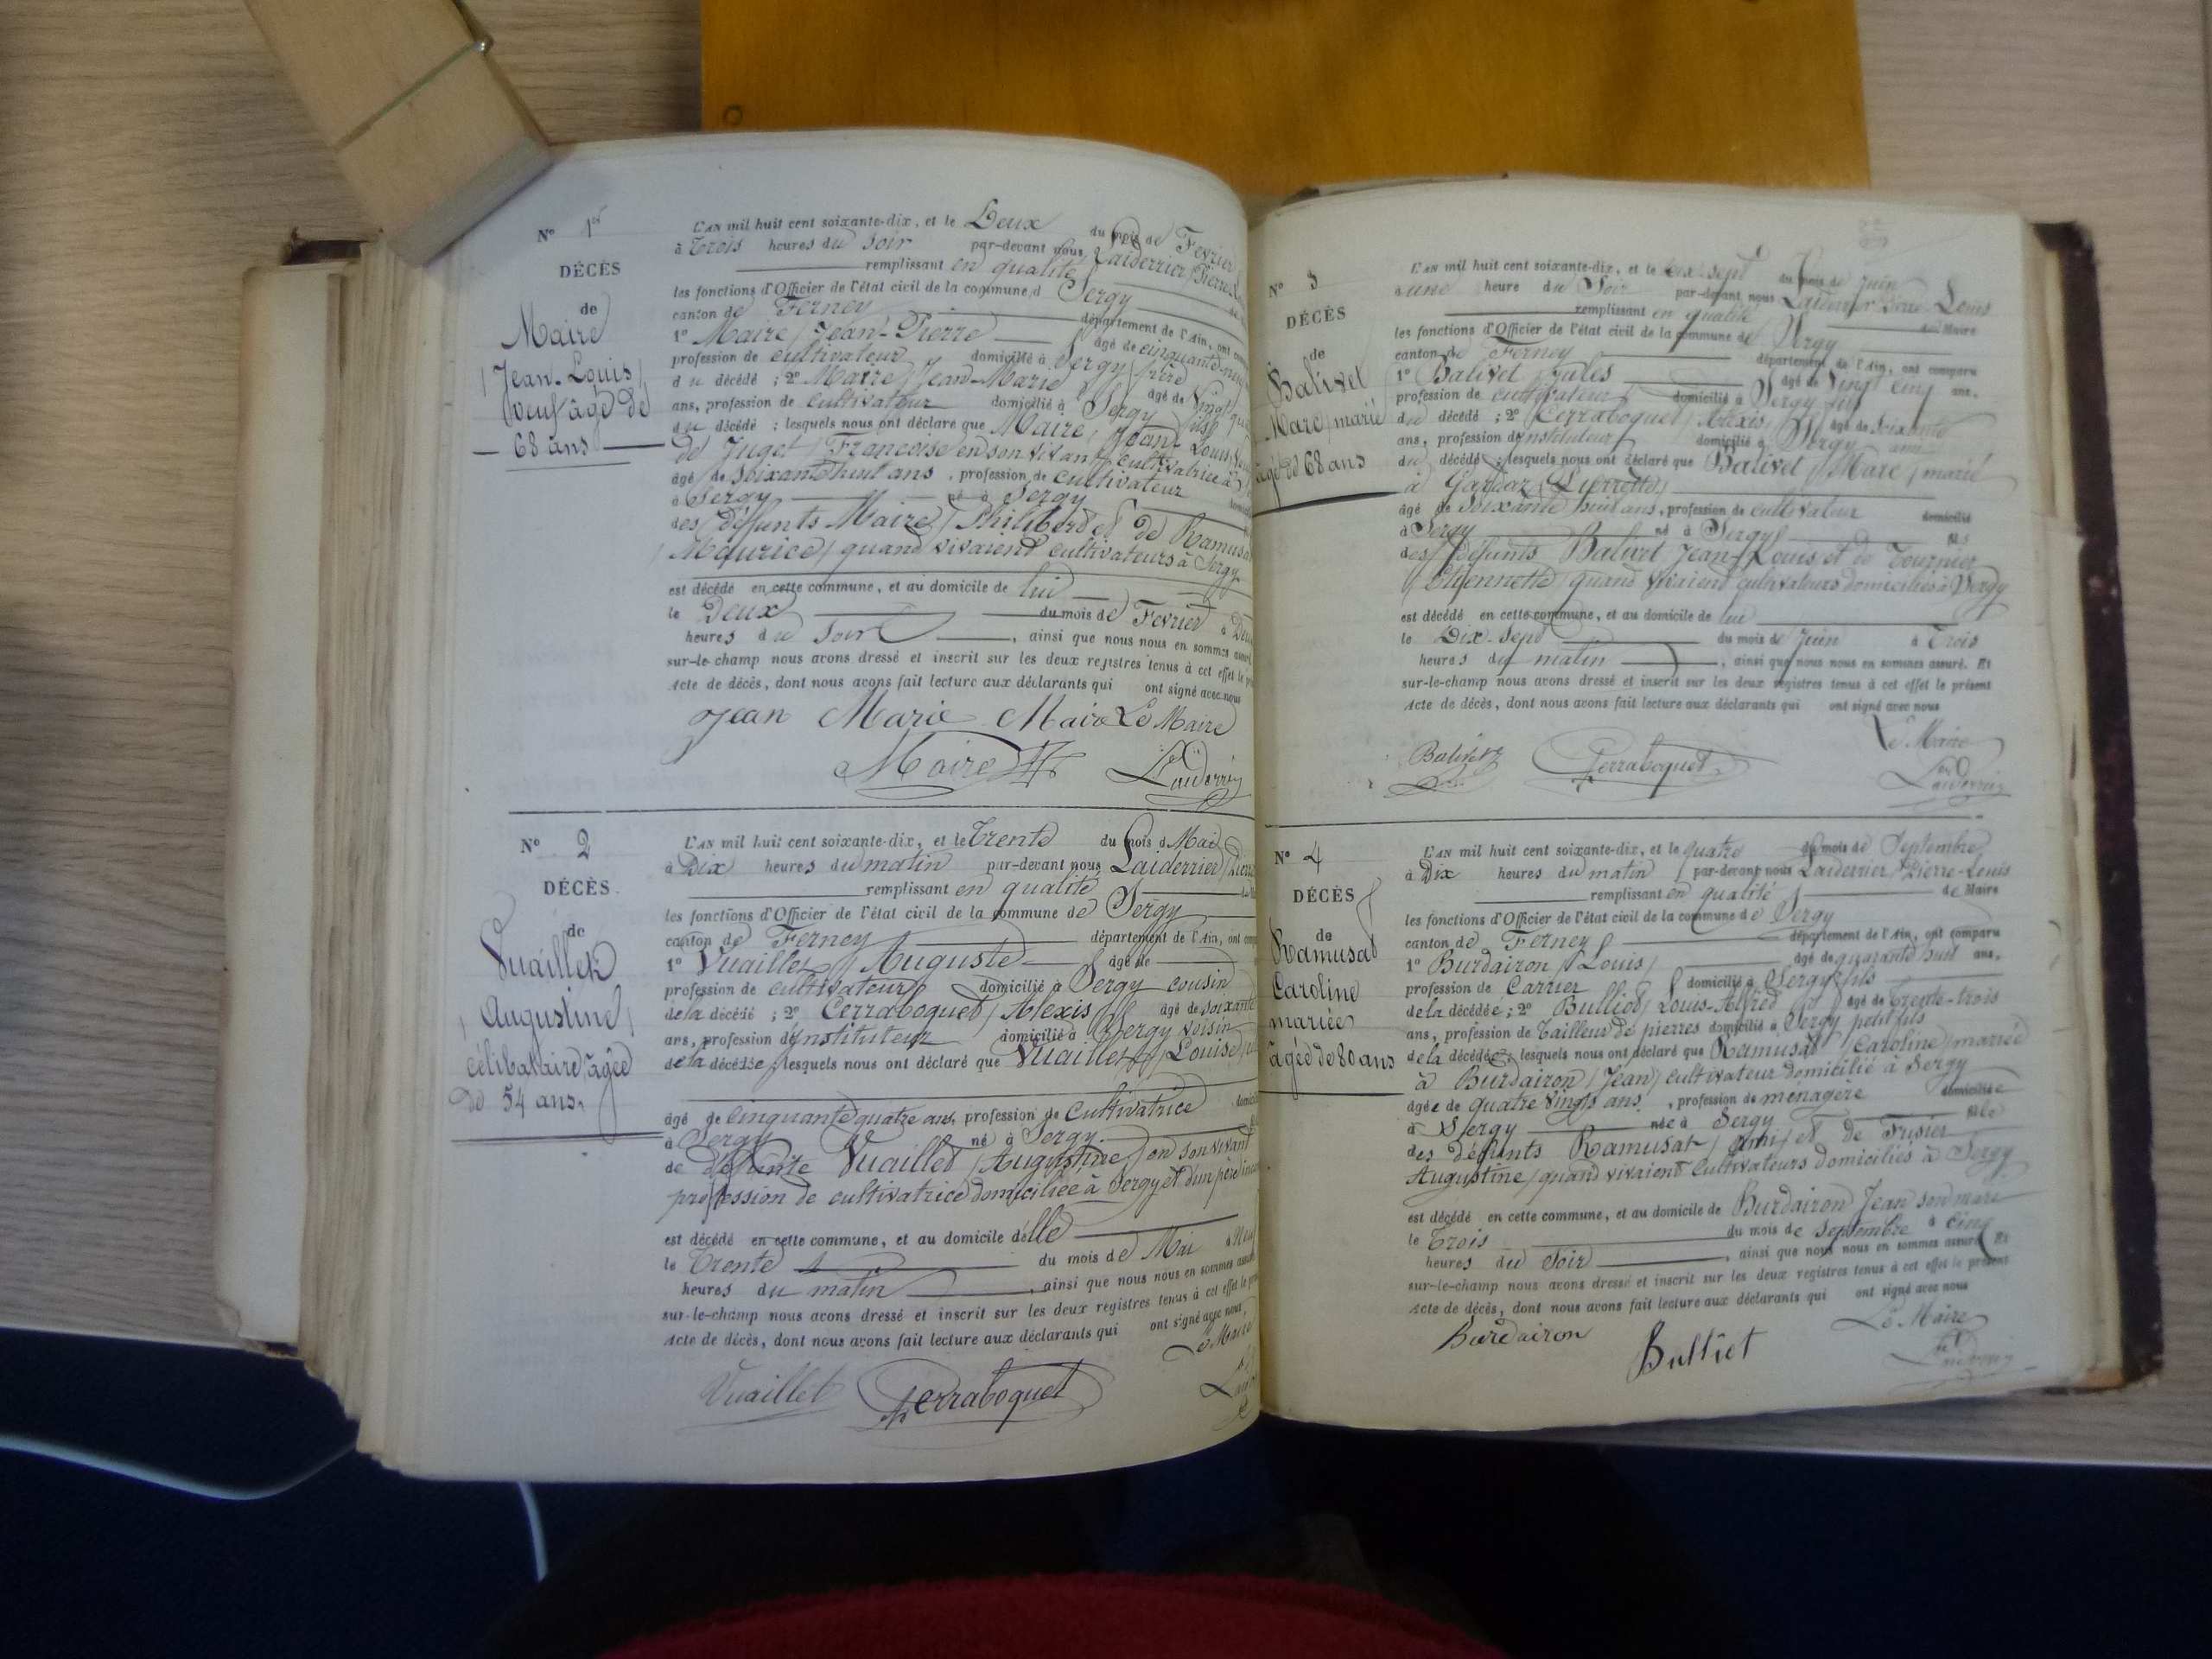 N° 1er
DÉCÈS
de
Maire
(Jean-Louis)
veuf âgé de
68 ans
L'AN mil huit cent soixante-dix, et le Deux du mois de Fevrier
à Trois heures du soir par-devant nous Laiderrier (Pierre
remplissant en qualité
les fonctions d'Officier de l'état civil de la commune d Sergy
canton de Ferney département de l'Ain, ont
1° Maire (Jean-Pierre) âgé de cinquante-neuf
profession de cultivateur domicilié à Sergy frère
du décédé ; 2° Maire (Jean-Marie) âgé de Vingt
ans, profession de cultivateur domicilié à Sergy fils
du décédé ; lesquels nous ont déclaré que Maire (Jean-Louis)
de Juget (Françoise) en son vivant cultivatrice à
âgé de soixante huit ans, profession de cultivateur
à Sergy né à Sergy
des défunts Maire (Philibert) et de Ramusa
(Maurice) quand vivaient cultivateurs à Sergy
est décédé en cette commune, et au domicile de lui
le Deux du mois de Fevrier à Deux
heures du soir, ainsi que nous nous en sommes
sur-le-champ nous avons dressé et inscrit sur les deux registres tenus à cet effet le
Acte de décès, dont nous avons fait lecture aux déclarants qui ont signé avec nous
Jean Marie Maire Le Maire
Maire
N° 2
DÉCÈS.
de
Vuaillet
(Augustine)
célibataire âgée
de 54 ans.
L'AN mil huit cent soixante-dix, et le Trente du mois d Mai
à Dix heures du matin par-devant nous Laiderrier (Pierre
remplissant en qualité
les fonctions d'Officier de l'état civil de la commune de Sergy
canton de Ferney département de l'Ain, ont
1° Vuaillet (Auguste) âgé de
profession de cultivateur domicilié à Sergy cousin
de la décédé ; 2° Perraboquet (Alexis) âgé de soixante
ans, profession d'instituteur domicilié à Sergy voisin
de la décédée, lesquels nous ont déclaré que Vuaillet (Louise)
âgé de cinquante quatre ans, profession de Cultivatrice
à Sergy né à Sergy
de défunte Vuaillet (Augustine) en son vivant
profession de cultivatrice domiciliée à Sergy et d'un père
est décédé en cette commune, et au domicile d'elle
le Trente du mois de Mai à
heures du matin, ainsi que nous nous en sommes
sur-le-champ nous avons dressé et inscrit sur les deux registres tenus à cet effet le
Acte de décès, dont nous avons fait lecture aux déclarants qui ont signé avec nous,
Le Maire
Vuaillet Perraboquet
N° 3
DÉCÈS
de
Balivet
Marc (marié
âgé de 68 ans
L'AN mil huit cent soixante-dix, et le dix-sept du mois de Juin
à une heure du Soir par-devant nous Laiderrier Pierre Louis
remplissant en qualité de Maire
les fonctions d'Officier de l'état civil de la commune de Sergy
canton de Ferney département de l'Ain, ont comparu
1° Balivet Jules âgé de Vingt cinq ans,
profession de cultivateur domicilié à Sergy fils
du décédé ; 2° Perraboquet (Alexis) âgé de soixante
ans, profession d'instituteur domicilié à Sergy ami
du décédé ; lesquels nous ont déclaré que Balivet (Marc) marié
à
âgé de soixante huit ans, profession de cultivateur domicilié
à Sergy né à Sergy fils
des défunts Balivet Jean-Louis et de Tournier
Etiennette (quand vivaient cultivateurs domiciliés à Sergy
est décédé en cette commune, et au domicile de lui
le Dix-sept du mois de Juin à Trois
heures du matin, ainsi que nous nous en sommes assuré. Et
sur-le-champ nous avons dressé et inscrit sur les deux registres tenus à cet effet le présent
Acte de décès, dont nous avons fait lecture aux déclarants qui ont signé avec nous
Le Maire
Balivet Perraboquet
N° 4
DÉCÈS
de
Ramusat
Caroline
mariée
âgée de 80 ans
L'AN mil huit cent soixante-dix, et le quatre du mois de Septembre
à Dix heures du matin par-devant nous Laiderrier Pierre-Louis
remplissant en qualité de Maire
les fonctions d'Officier de l'état civil de la commune de Sergy
canton de Ferney département de l'Ain, ont comparu
1° Burdairon (Louis) âgé de quarante huit ans,
profession de Carrier domicilié à Sergy fils
de la décédée ; 2° Bulliet (Louis-Alfred) âgé de trente-trois
ans, profession de Tailleur de pierres domicilié à Sergy petit fils
de la décédée, lesquels nous ont déclaré que Ramusat (Caroline) mariée
à Burdairon (Jean) cultivateur domicilié à Sergy
âgée de quatre vingts ans, profession de ménagère domiciliée
à Sergy née à Sergy fille
des défunts Ramusat (Ami) et de Frisier
Augustine (quand vivaient Cultivateurs domiciliés à Sergy
est décédé en cette commune, et au domicile de Burdairon Jean son mari
le Trois du mois de Septembre à cinq
heures du Soir, ainsi que nous nous en sommes assuré Et
sur-le-champ nous avons dressé et inscrit sur les deux registres tenus à cet effet le présent
Acte de décès, dont nous avons fait lecture aux déclarants qui ont signé avec nous
Le Maire
Burdairon Bulliet